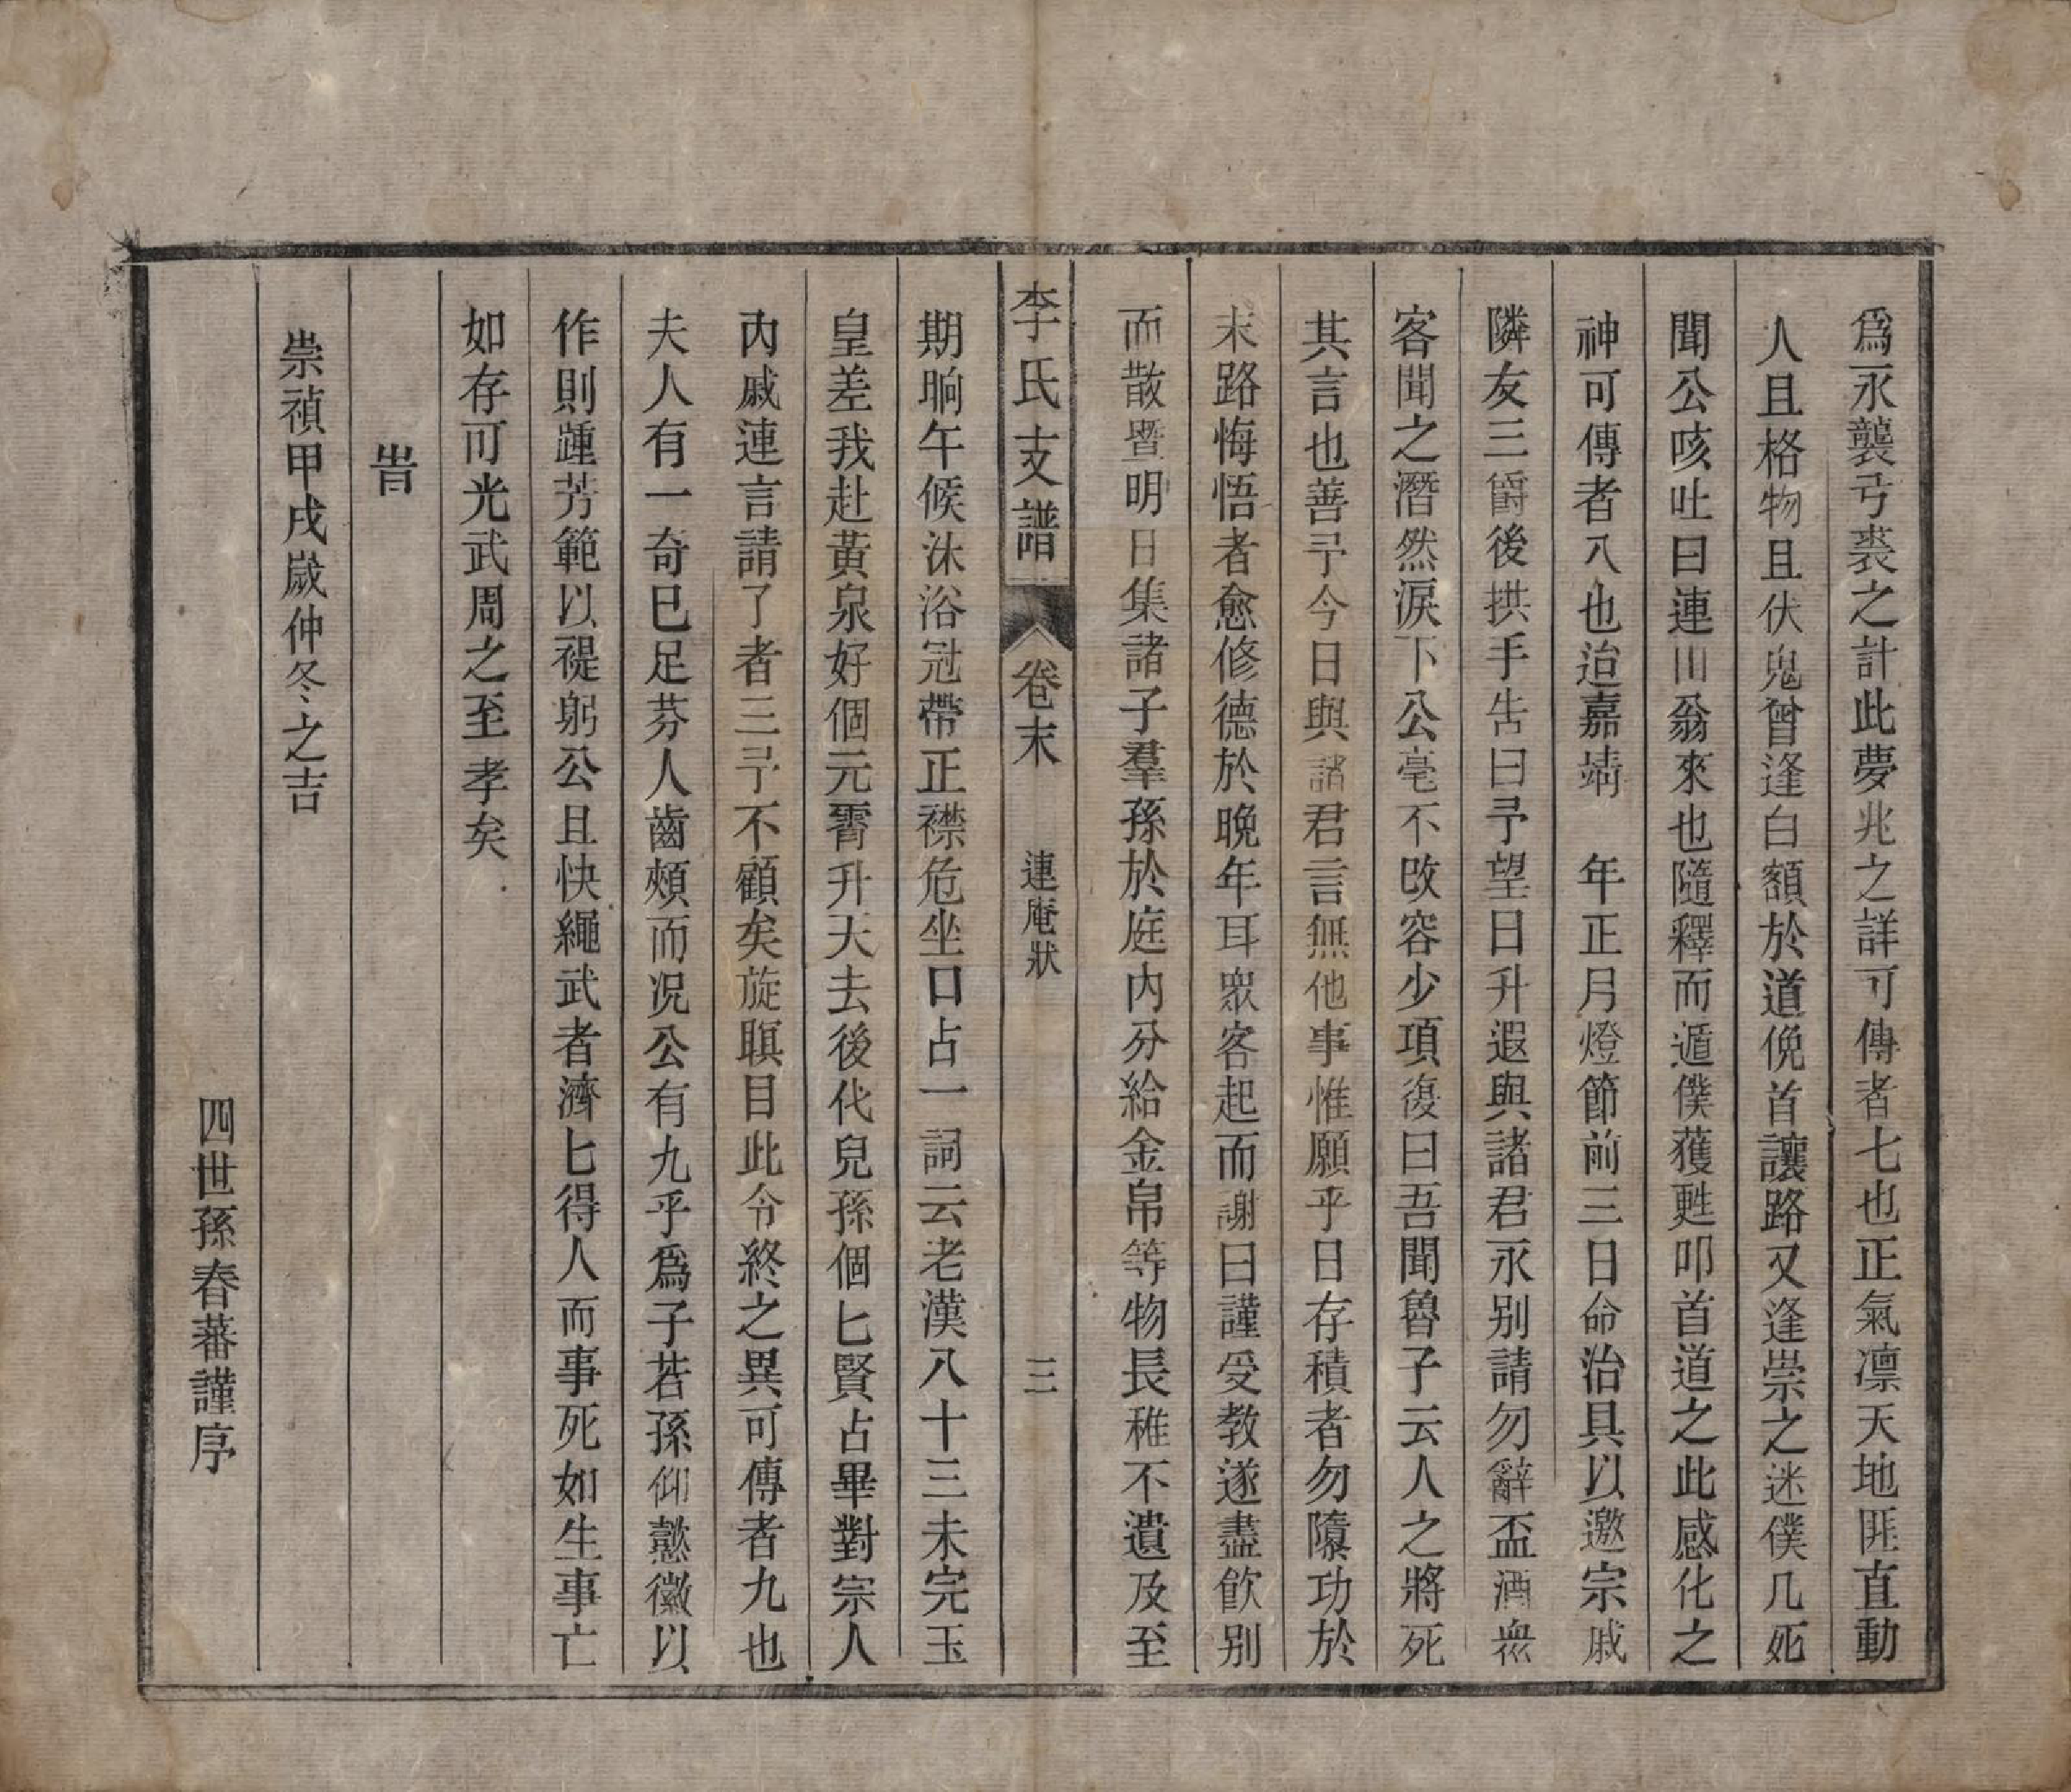 爲永襲弓裘之計此夢兆之詳可傳者七也正氣凛天地匪直動
人且格物且伏鬼曾逢白額於道俛首讓路又逢祟之迷僕几死
聞公咳吐曰連川翁來也隨釋而遁僕獲甦叩首道之此感化之
神可傳者八也迨嘉靖　年正月燈節前三日命治具以邀宗戚
隣友三爵後拱手告曰予望日升遐與諸君永别請勿辭盃酒衆
客聞之潛然淚下公毫不改容少項復曰吾聞魯子云人之將死
其言也善予今日與諸君言無他事惟願平日存積者勿隳功於
末路悔悟者愈修德於晚年耳衆客起而謝曰謹受教遂盡飲别
而散暨明日集諸子羣孫於庭内分給金帛等物長稚不遺及至
李氏支譜　卷末　連庵狀　三
期晌午候沐浴冠帶正襟危坐口占一詞云老漢八十三未完玉
皇差我赴黄泉好個元霄升天去後代兒孫個匕賢占畢對宗人
内戚連言請了者三予不顧矣旋瞑目此令終之異可傳者九也
夫人有一奇已足芬人齒頰而况公有九乎爲子若孫仰懿徽以
作則踵芳範以禔躬公且快繩武者濟匕得人而事死如生事亡
如存可光武周之至孝矣
旹
崇禎甲戌歲仲冬之吉
四世孫春蕃謹序